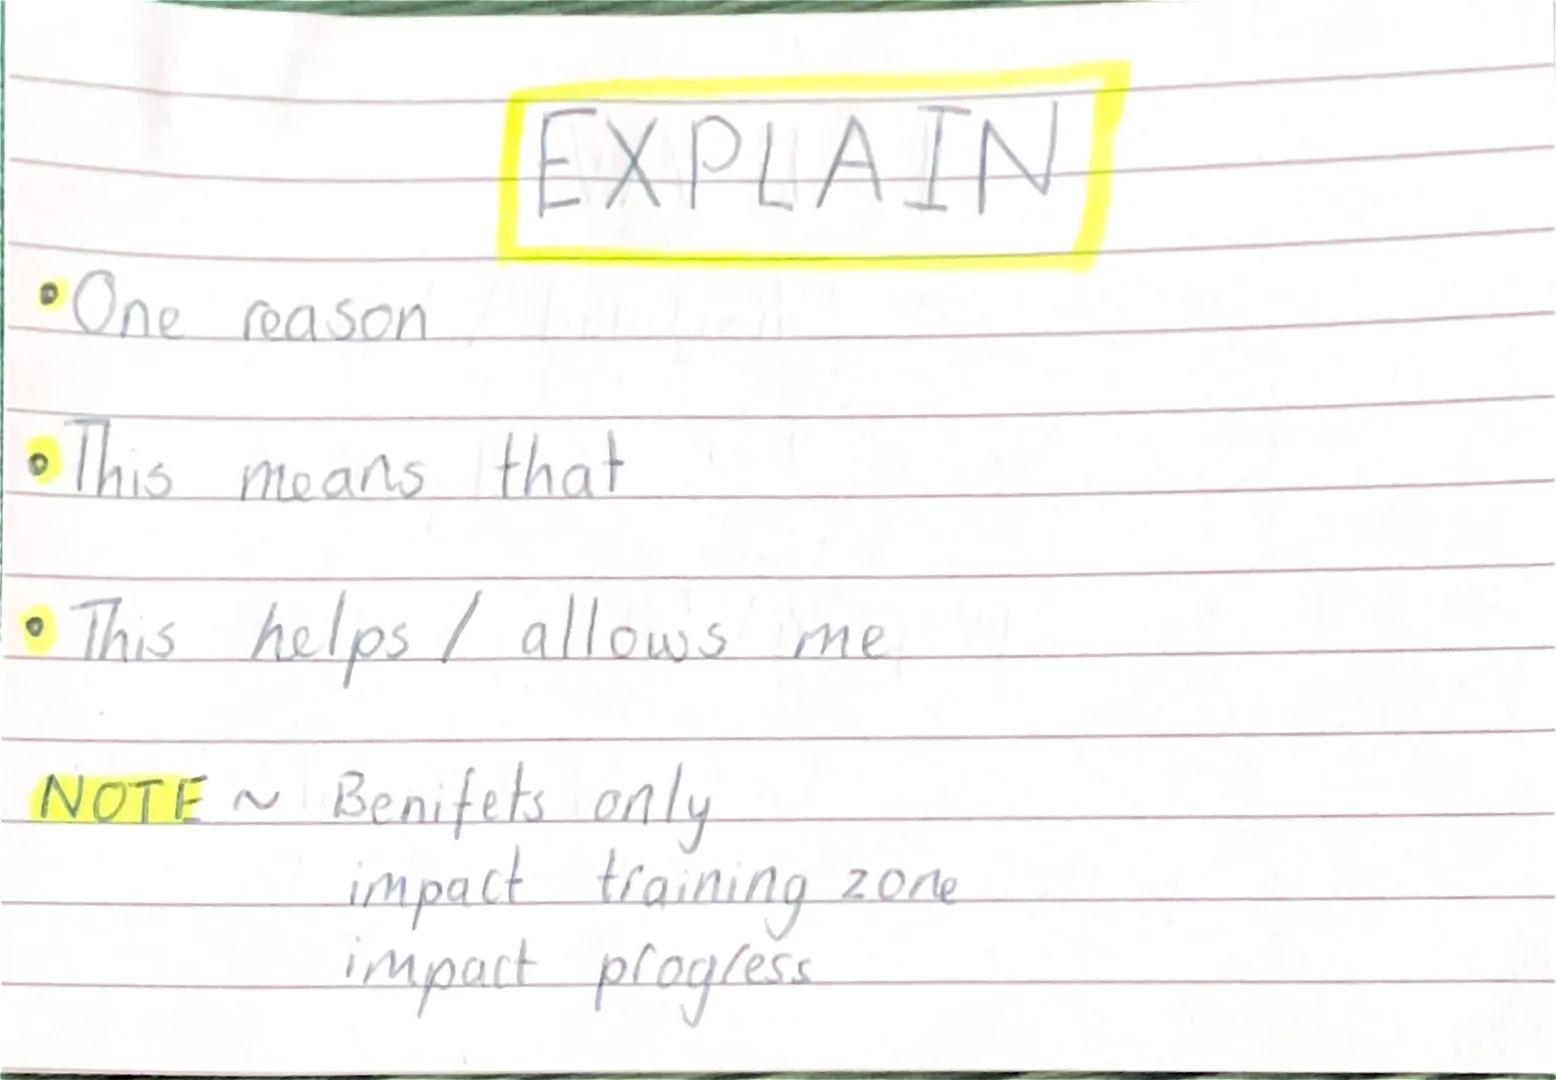 EXPLAIN
• One reason
• This means that
• This helps / allows me
NOTE ~ Benifets only
impact training zone
impact progress